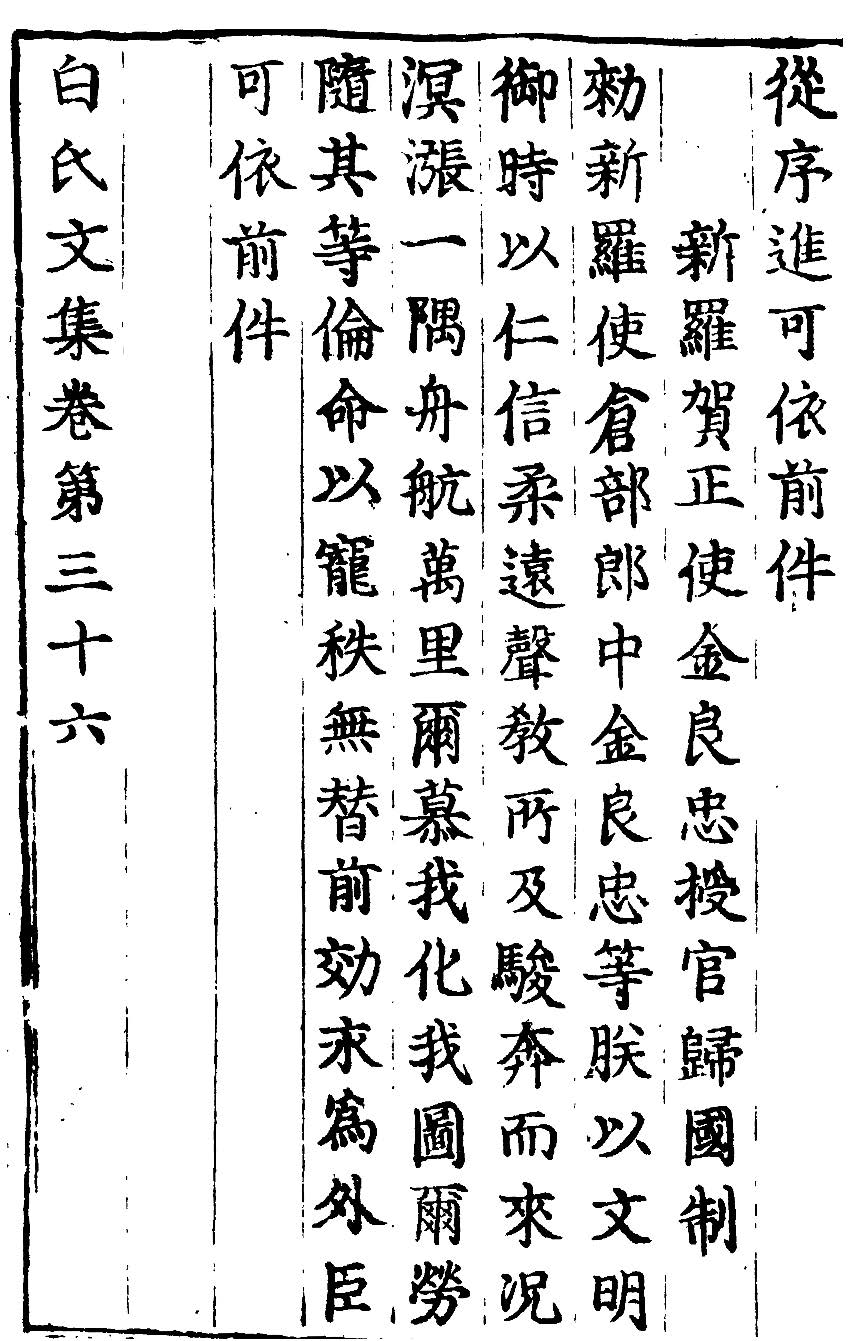 從序進可依前件
新羅賀正使金良忠授官歸國制
勑新羅使倉部郎中金良忠等朕以文明
御時以仁信柔遠聲敎所及駿奔而來況
溟漲一隅舟航萬里爾慕我化我圖爾勞
隨其等倫命以寵秩無替前効永爲外臣
可依前件
白氏文集卷第三十六